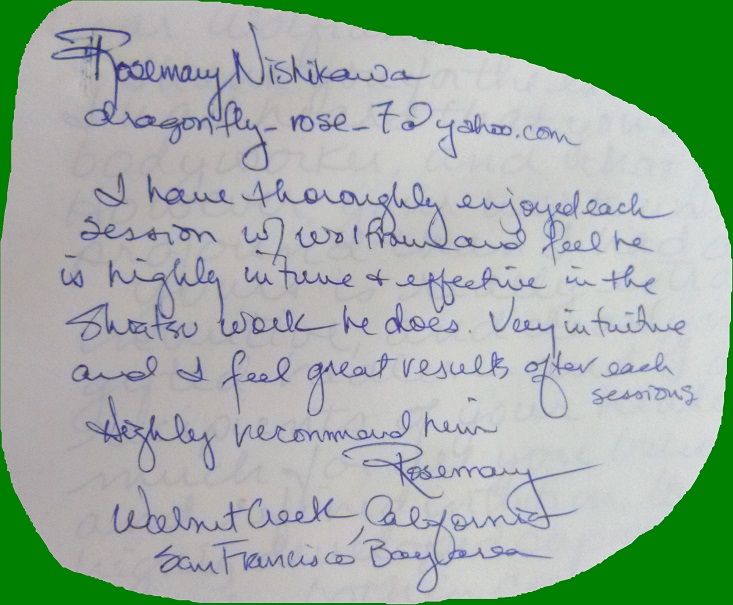 Rosemary Nishikawa
dragonfly_rose_7@yahoo.com
I have thoroughly enjoyed each
session w/ Wolfram and feel he
is highly intune + effective in the
Shiatsu work he does. Very intuitive
and I feel great results after each
sessions
Highly recommend him
Rosemary
Walnut Creek, California
San Francisco Bay area